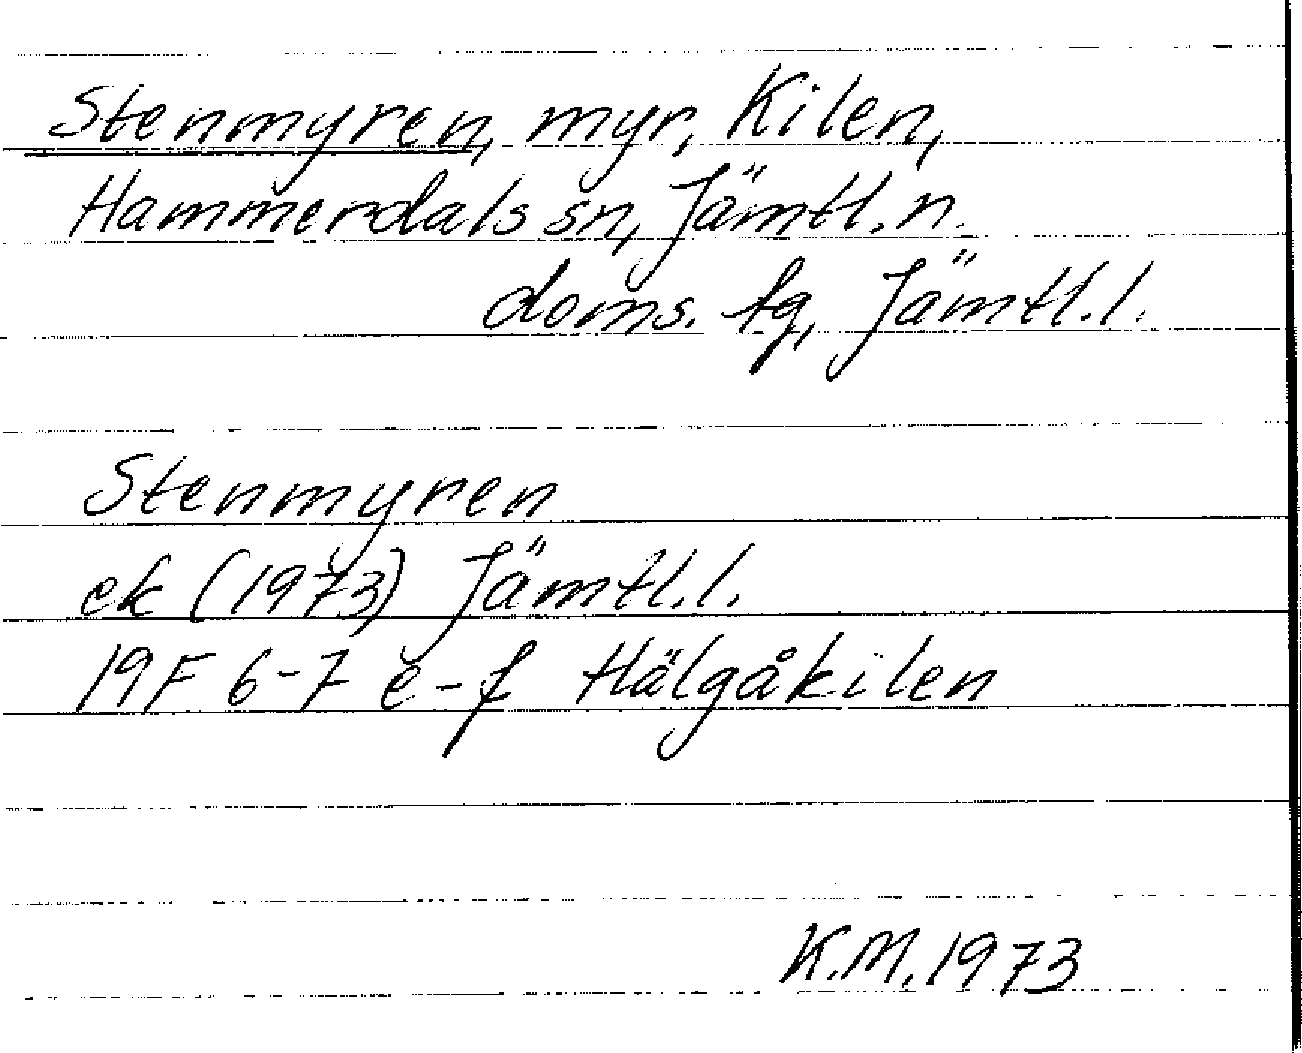 Stenmyren, myr, Kilen,
Hammerdals sn, Jämtl. n.
doms. fq, Jämtl. l.
Stenmyren
ek (1973) Jämtl. l.
19F 6-7 e-f Hälgåkilen
K.M. 1973